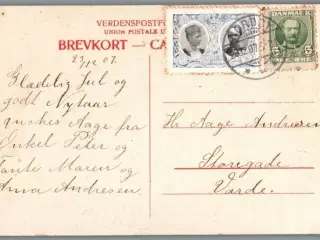 VERDENSPOSTFO
UNION POSTALE U
BREVKORT — CA
23/12 07.
Glædelig Jul og
godt Nytaar
ønskes Aage fra
Onkel Peter og
Tante Maren og
Anna Andresen
DANMARK
5 5
ØRE
Hr Aage Andresen
Storegade
Varde.